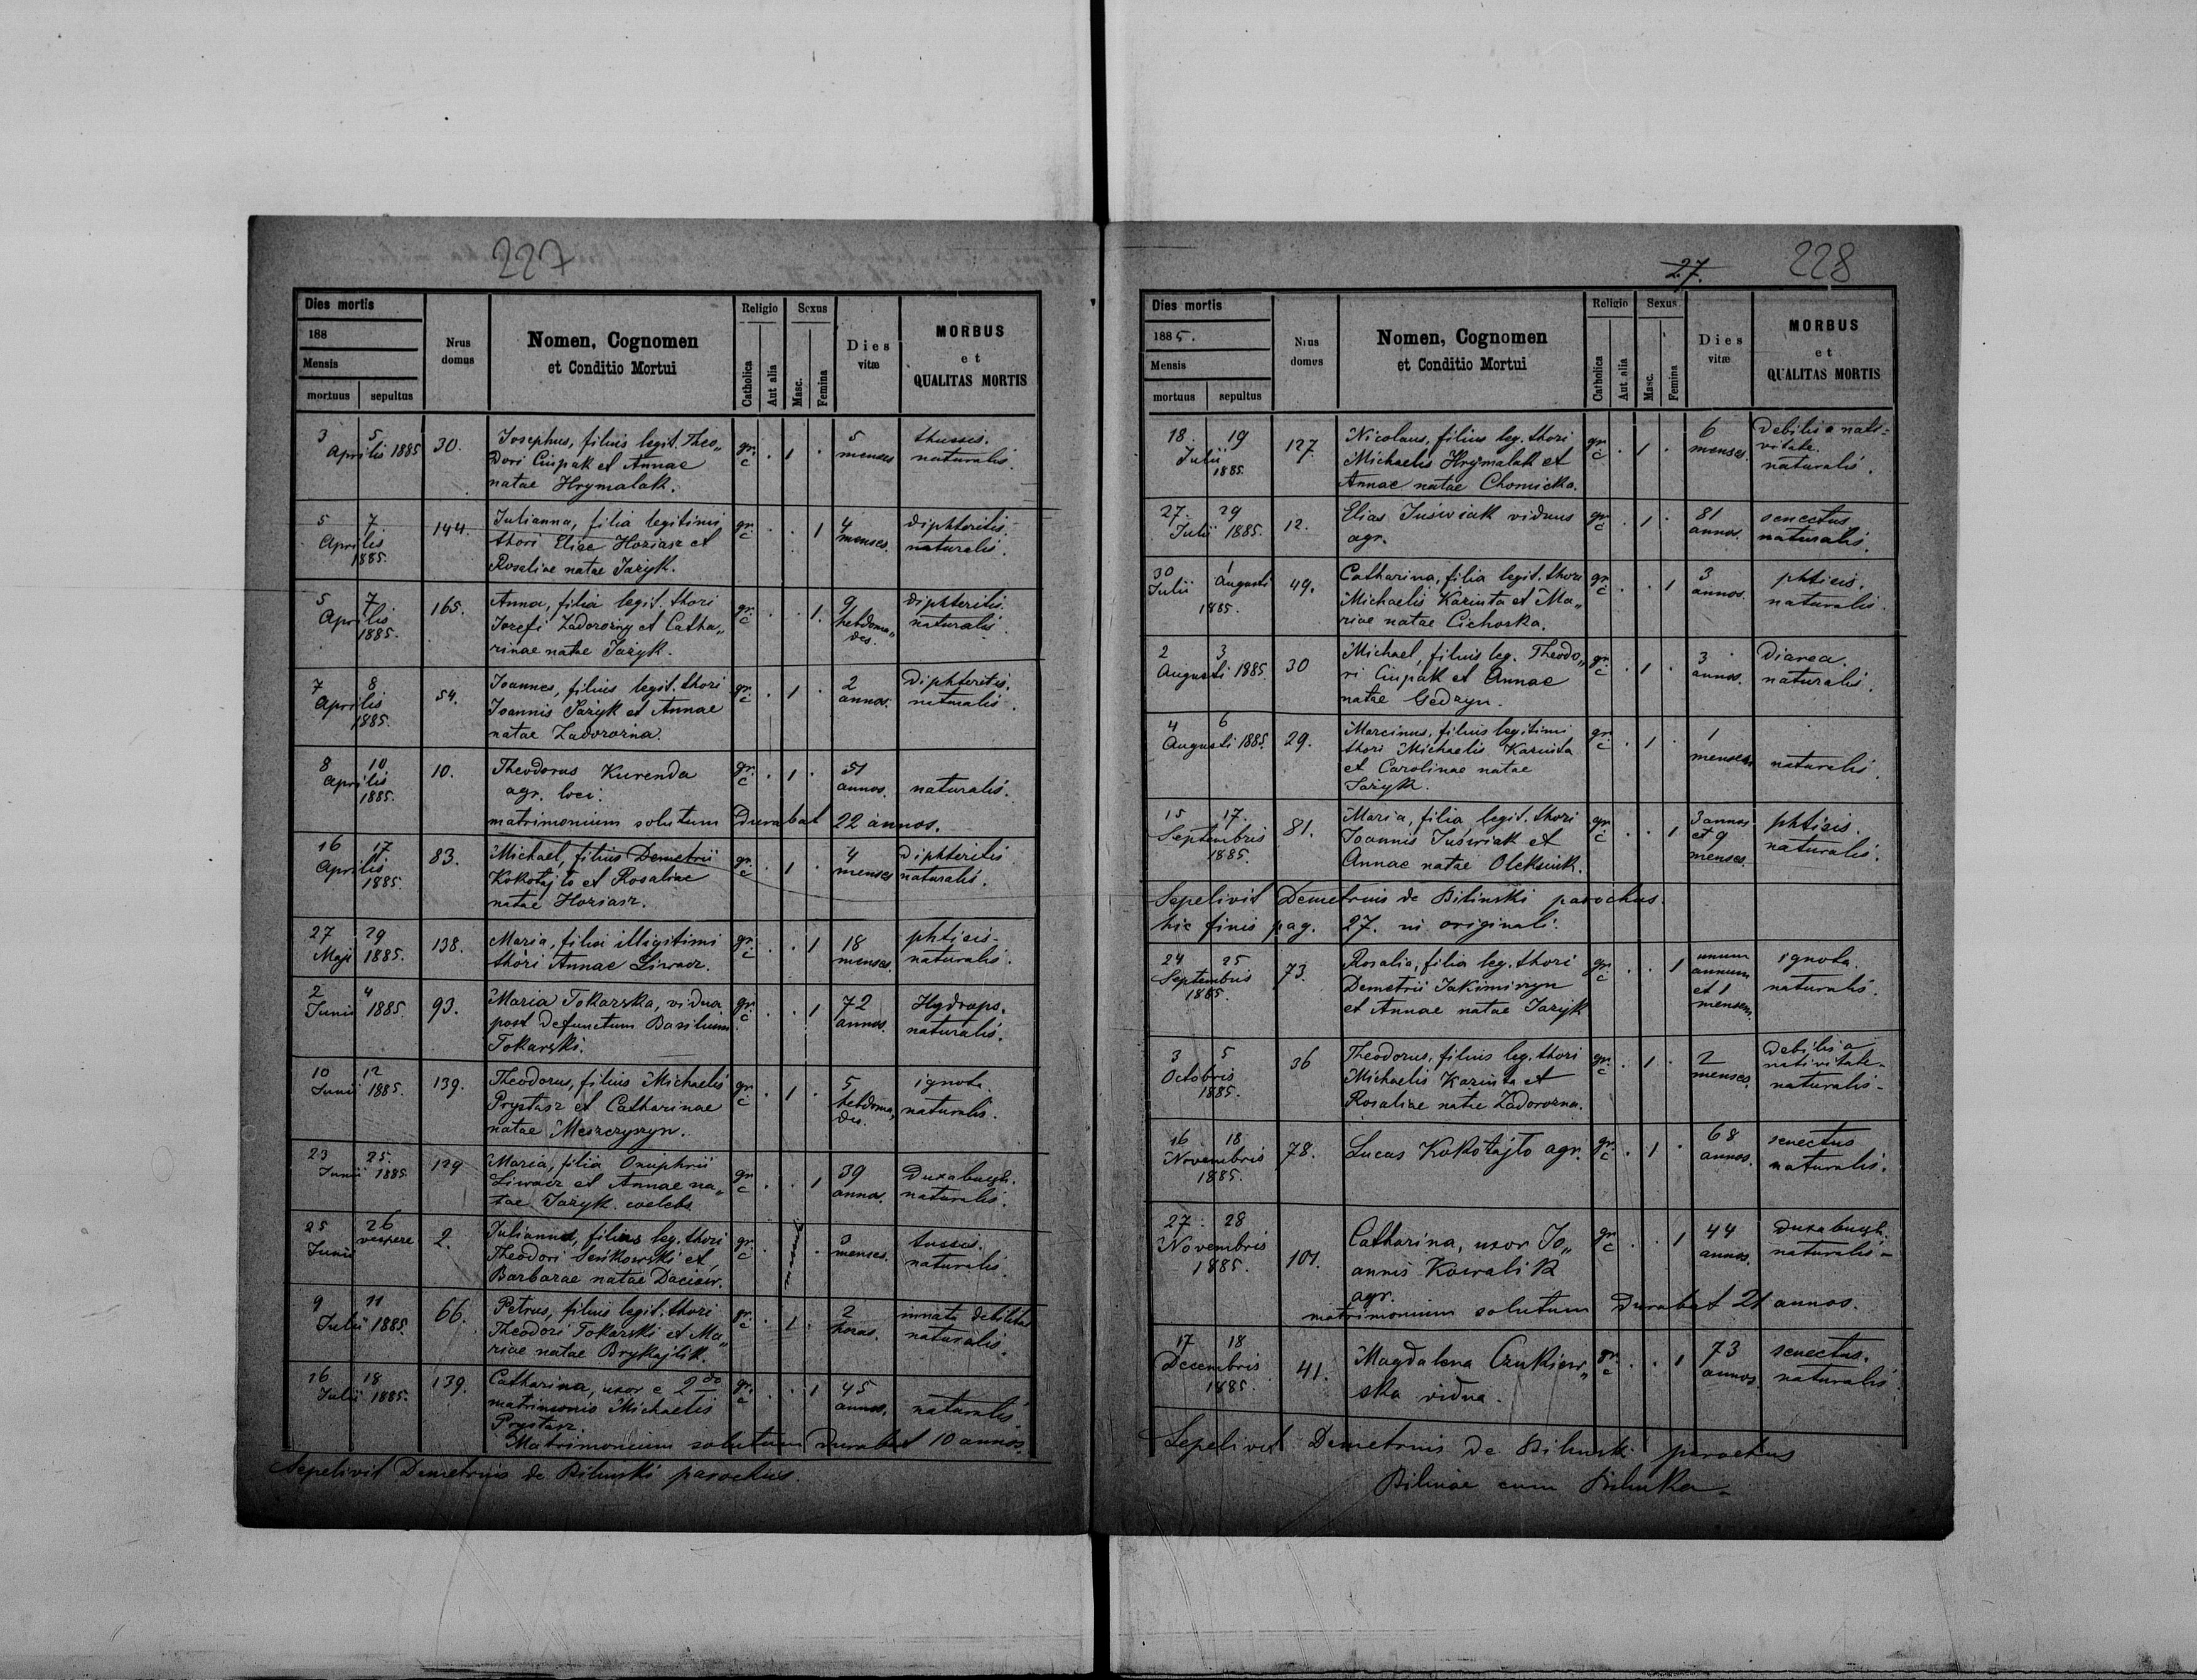 227
Dies mortis
188
Mensis
mortuus sepultus
Nrus domus
Nomen, Cognomen
et Conditio Mortui
Religio
Catholica
Aut alia
Sexus
Masc.
Femina
Dies vitæ
MORBUS
et
QUALITAS MORTIS
3 5 Aprilis 1885 30. Josephus, filius legit. Theo„ gr. c . 1 . 5 menses thussis.
dori Ciupak et Annae naturalis.
natae Hrymalak.
5 7. Aprilis 1885. 144. Julianna, filia legitimi gr. c . . 1 4 menses. diphteritis.
thori Eliae Horiasz et naturalis.
Rosaliae natae Jazyk.
5 7 Aprilis 1885. 165. Anna, filia legit. thori gr. c . . 1. 9 hebdoma„ des. diphteritis.
Josefi Zadorozny et Catha„ naturalis.
rinae natae Jazyk.
7 8 Aprilis 1885. 54. Joannes, filius legit. thori gr. c . 1 . 2 annos. Diphteritis.
Joannis Jazyk et Annae naturalis.
natae Zadorozna.
8 10 Aprilis 1885. 10. Theodorus Kurenda gr. c . 1 . 51 annos. naturalis.
agr. loci.
matrimonium solutum durabat 22 annos.
16 17 Aprilis 1885. 83. Michael, filius Demetrii gr. c . 1 . 4 menses diphteritis
Kokotajło et Rosaliae naturalis.
natae Horiasz.
27 29 Maji 1885. 138. Maria, filia illigitimi gr. c . . 1 18 menses. phtisis.
thori Annae Liwacz. naturalis.
2 4 Junii 1885. 93. Maria Tokarska, vidua gr. c . . 1 72 annos. Hydrops.
post defunctum Basilium naturalis.
Tokarski.
10 12 Junii 1885. 139. Theodorus, filius Michaelis gr. c . 1 . 5 hebdoma„ des. ignota.
Prystasz et Catharinae naturalis.
natae Meszczyszyn.
23 25. Junii 1885. 129 Maria, filia Onuphrii gr. c . . 1 39 annos.
Liwacz et Annae na„ naturalis.
tae Jazyk. coelebs.
25 26 vespere Junii 2. filius leg. thori gr. c . . 3 menses. tussis.
Theodori Seńkowski et naturalis.
Barbarae natae Daciów.
9 11 Julii 1885. 66. Petrus, filius legit. thori gr. c . 1. 2 horas. innata debilitas
Theodori Tokarski et Ma„ naturalis.
riae natae Brykajlik.
16 18 Julii 1885. 139. Catharina, uxor e 2do gr. c . . 1 45 annos. naturalis.
matrimonio Michaelis
Prystasz.
Matrimonium solutum durabat 10 annos.
Sepelivit Demetrius de Bilinski parochus.
27.
228
Dies mortis
1885.
Mensis
mortuus sepultus
Nrus domus
Nomen, Cognomen
et Conditio Mortui
Religio
Catholica
Aut alia
Sexus
Masc.
Femina
Dies vitæ
MORBUS
et
QUALITAS MORTIS
18. 19 Julii 1885. 127. Nicolaus, filius leg. thori gr. c . 1 . 6 menses. debilis a nati-
Michaelis Hrymalak et vitate.
Annae natae Chomicka. naturalis.
27. 29 Julii 1885. 12. Elias Juświak viduus gr. c . 1 . 81 annos. senectus
agr. naturalis.
30 Julii 1 Augusti 1885. 49. Catharina, filia legit. thori gr. c . . 1 3 annos. phtisis.
Michaelis Kaziuta et Ma„ naturalis.
riae natae Cichorka.
2 3 Augusti 1885. 30 Michael, filius leg. Theodo„ gr. c . 1 . 3 annos. Diarea.
ri Ciupak et Annae naturalis.
natae Gedzyn.
4 6 Augusti 1885. 29. Marcinus, filius legitimi gr. c . 1 . 1 mensem naturalis.
thori Michaelis Kaziuta
et Carolinae natae
Jazyk.
15 17. Septembris 1885. 81. Maria, filia legit. thori gr. c . . 1 3 annos et 9 menses phtisis.
Joannis Juświak et naturalis.
Annae natae Oleksiuk.
Sepelivit Demetrius de Bilinski parochus.
hic finis pag. 27. in originali.
24 25 Septembris 1885. 73. Rosalia, filia leg. thori gr. c . . 1 unum annum et 1 mensem. ignota.
Demetrii Jakimiszyn naturalis.
et Annae natae Jazyk
3 5 Octobris 1885. 36 Theodorus, filius leg. thori gr. c . 1 . 2 menses. debilis a
Michaelis Kaziuta et nativitate.
Rosaliae natae Zadorozna. naturalis.
16 18 Novembris 1885. 78. Lucas Kokotajło agr. gr. c . 1 . 68 annos. senectus
naturalis.
27. 28 Novembris 1885. 101. Catharina, uxor Jo„ gr. c . . 1 44 annos.
annis Kowalik naturalis.
agr.
matrimonium solutum durabat 21 annos.
17 18 Decembris 1885. 41. Magdalena Czukiew„ gr. c . . 1 73 annos. senectus.
ska vidua. naturalis
Sepelivit Demetrius de Bilinski parochus
Bilinae cum Bilinka.